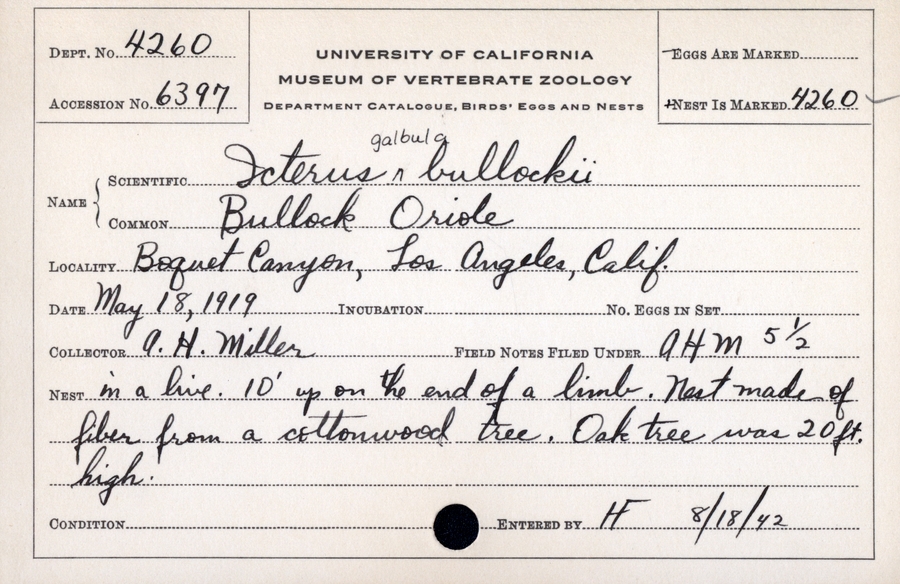 DEPT. No. 4260
UNIVERSITY OF CALIFORNIA
EGGS ARE MARKED
MUSEUM OF VERTEBRATE ZOOLOGY
ACCESSION No. 6397
DEPARTMENT CATALOGUE, BIRDS' EGGS AND NESTS
NEST IS MARKED 4260
galbula
NAME
SCIENTIFIC Icterus ^ bullockii
COMMON Bullock Oriole
LOCALITY Boquet Canyon, Los Angeles, Calif.
DATE May 18, 1919 INCUBATION No. EGGS IN SET
COLLECTOR A. H. Miller FIELD NOTES FILED UNDER AHM 5 1/2
NEST in a live. 10' up on the end of a limb. Nest made of
fiber from a cottonwood tree. Oak tree was 20 ft.
high.
CONDITION ENTERED BY HF 8/18/42